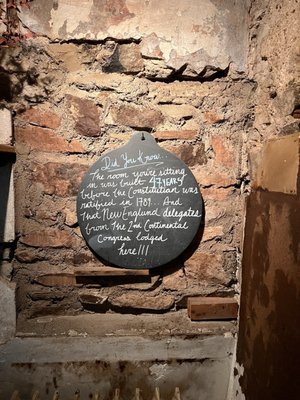 Did You Know...
The room you're sitting
in was built 47 YEARS
before the Constitution was
ratified in 1789... And
that New England delegates
from the 2nd Continental
Congress lodged
here!!!